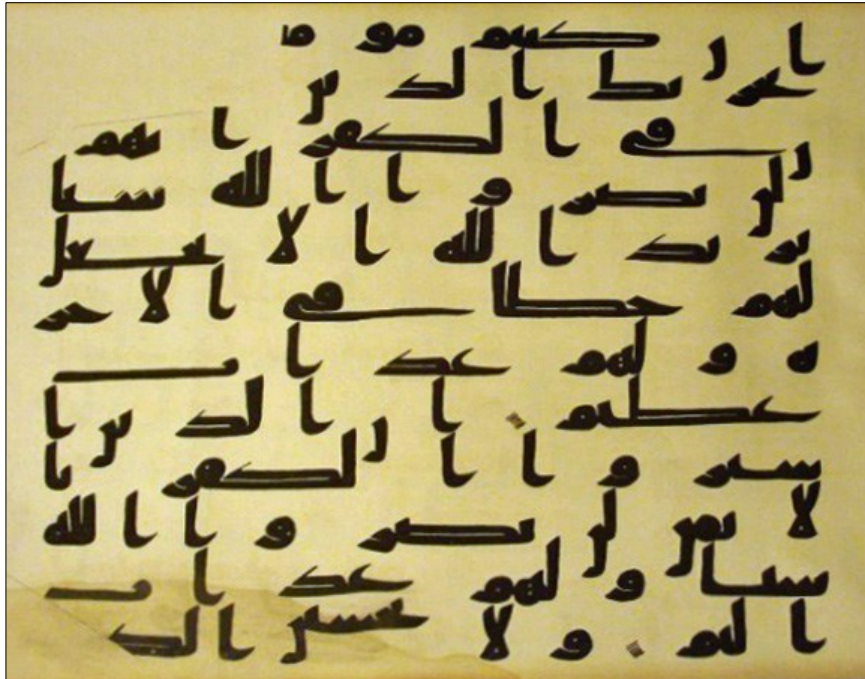 ان كنتم مومن
الذين
ن في الكفر انهم
لن يضروا الله شيا
يريد الله الا يجعل
لهم حظا في الاخر
ه ولهم عذاب
عظيم ان الذين ا
شتروا الكفر با
لايمن لن يضروا الله
شيا ولهم عذاب
اليم ولا يحسبن الذ